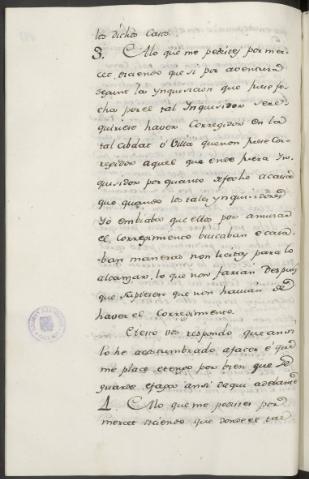 los dichos Casos.
3. A lo que me pedistes por mer-
ced, diciendo que si por aventura
segunt la Ynquisicion que fuese fe-
cha por el tal Ynquisidor se re-
quiriese haver Corregidor en la
tal cibdat o Villa que non fuese Cor-
regidor aquel que ende fuera In-
quisidor por quanto a fecho acaescia
que quando los tales ynquisidores
Yo embiaba que ellos por
el corregimiento buscaban e cata-
ban maneras non licitas para lo
alcanzar, lo que non farian despues
que sopiesen que non havian de
haver el Corregimiento.
A esto vos respondo que ansi
lo he acostumbrado a facer é que
me place e tengo por bien que se
guarde e faga ansi daqui adelante
4. A lo que me pedistes por
merced diciendo que donde el tal